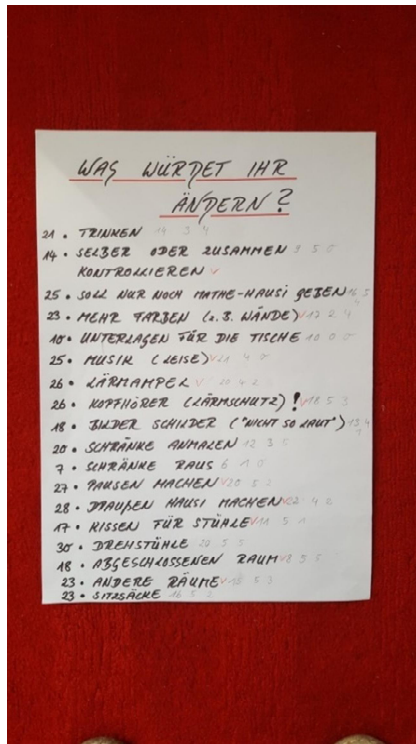 WAS WÜRDET IHR
ÄNDERN?
21 • TRINKEN 14 3 4
14 • SELBER ODER ZUSAMMEN 9 5 0
KONTROLLIEREN ✓
25 • SOLL NUR NOCH MATHE-HAUSI GEBEN 16 5
23 • MEHR FARBEN (z.B. WÄNDE) ✓ 17 2 4
10 • UNTERLAGEN FÜR DIE TISCHE 10 0 0
25 • MUSIK (LEISE) ✓ 21 4
26 • LÄRMAMPEL ✓ 20 4 2
26 • KOPFHÖRER (LÄRMSCHUTZ) ! ✓ 18 5 3
18 • BILDER SCHILDER ("NICHT SO LAUT") 13 4
20 • SCHRÄNKE ANMALEN 12 3 5
7 • SCHRÄNKE RAUS 6 1 0
27 • PAUSEN MACHEN ✓ 20 5 2
28 • DRAUßEN HAUSI MACHEN ✓ 22 4 2
17 • KISSEN FÜR STÜHLE ✓ 11 5 1
30 • DREHSTÜHLE 20 5 5
18 • ABGESCHLOSSENEN RAUM ✓ 8 5 5
23 • ANDERE RÄUME ✓ 15 5 3
23 • SITZSÄCKE 16 5 2